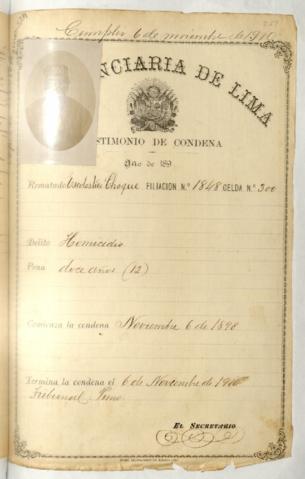 Cumplió 6 de noviembre de 1910
NCIARIA DE LIMA
STIMONIO DE CONDENA
Año de 189
Rematado Choque FILIACION N.° 1848 CELDA N.° 300
Delito Homicidio
Pena doce años (12)
Comienza la condena Noviembre 6 de 1898
Termina la condena el 6 de Noviembre de 1910
Tribunal
EL SECRETARIO